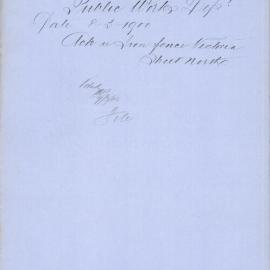 Public Works Dept
Date 8-3-1900
Ack re Iron fence Victoria
Street North
File